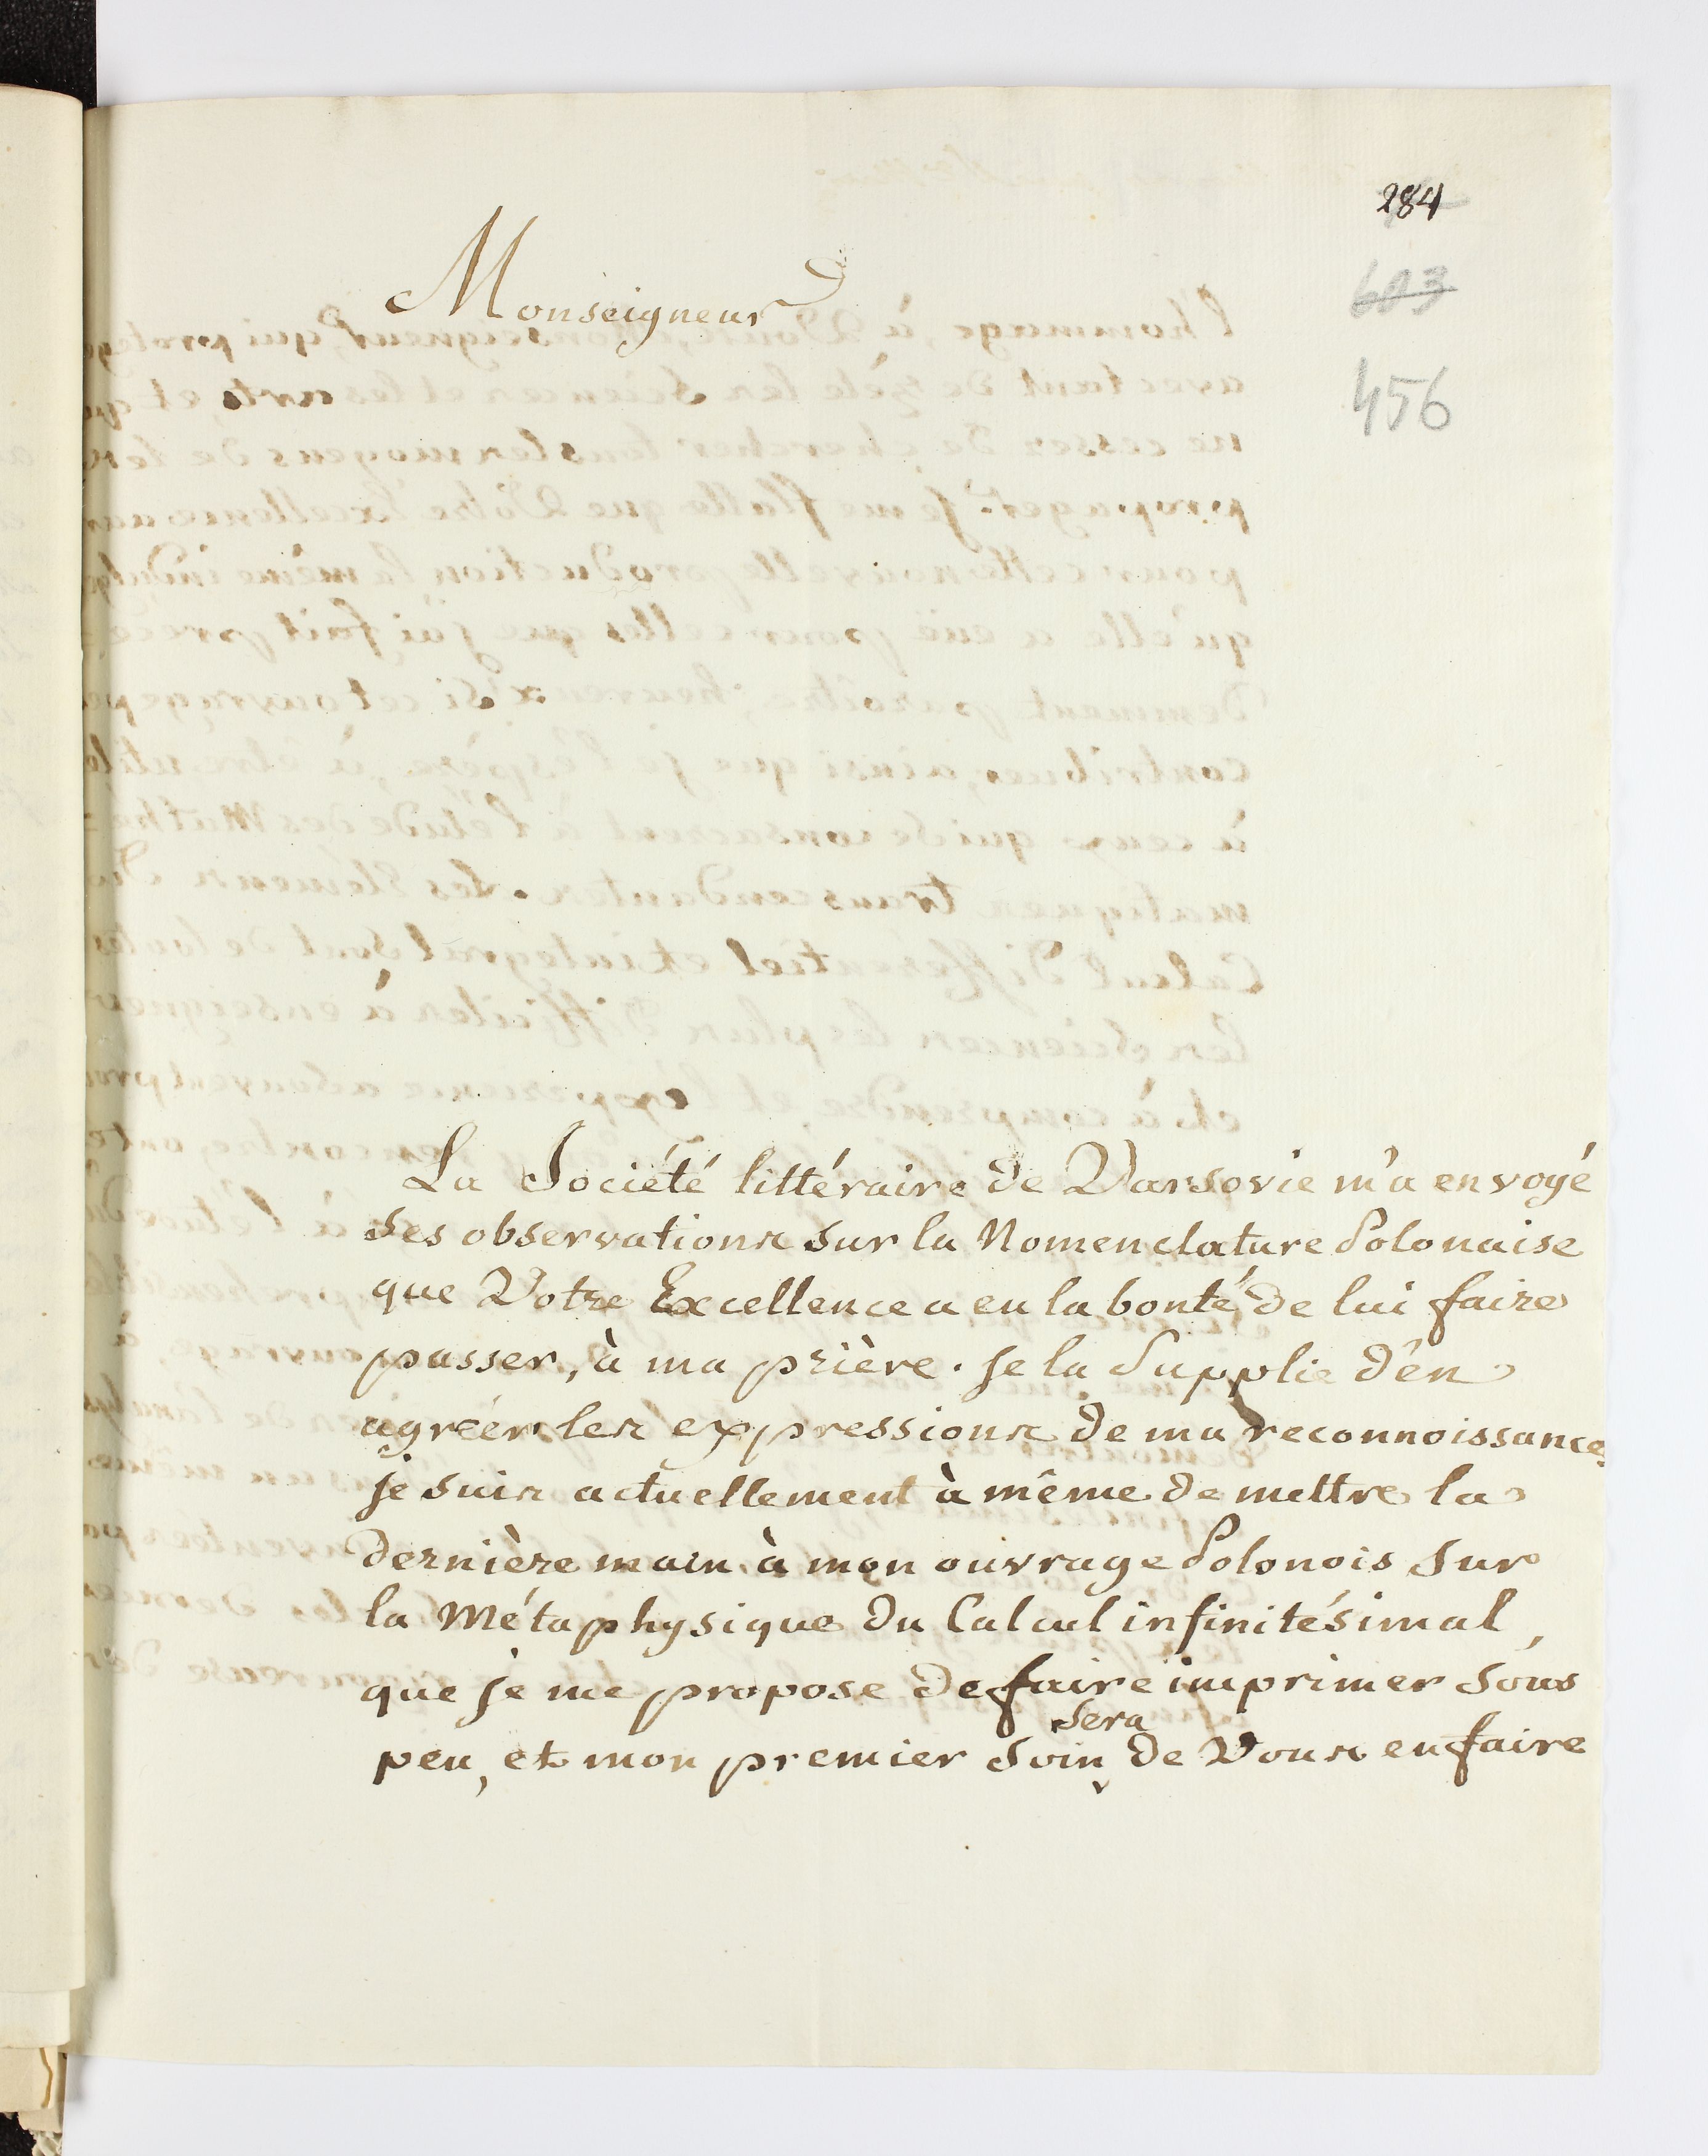 284
603
456
Monseigneur
La Société littéraire de Varsovie m'a envoyé
ses observations sur la Nomenclature Polonaise
que Votre Excellence a eu la bonté, de lui faire
passer, à ma prière. Je la Supplie d'en
agréer les expressions de ma reconnoissance,
je suis actuellement à même de mettre la
dernière main à mon ouvrage Polonois sur
la Métaphysique du Calcul infinitésimal,
que je me propose de faire imprimer sous
peu, et mon premier soin sera de Vous en faire